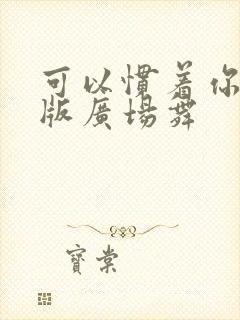 可以慣着你
版廣場舞
寶棠